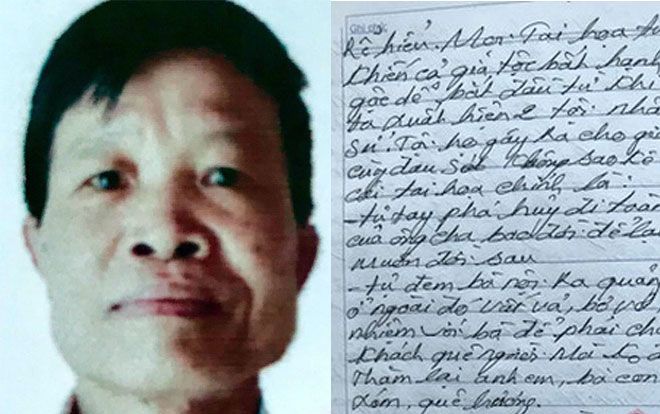 Ghi chú:
Rẽ hiểu. Mọi Tai họa
khiến cả gia tộc bất hạnh
gốc dễ bắt đầu từ khi
ta xuất hiện 2 tội
sử. Tội họ gây ra cho
cùng đau sót không sao
cái tai họa chính là:
- tự tay phá hủy đi toàn
của ông cha bao đời để lại
muôn đời sau
- tự đem bà nội ra
ở ngoài đó vất vả, bơ vơ
nhiệm với bà để phải
khách quê người Mà ko
Thăm lại anh em, bà con
xóm, quê hương.